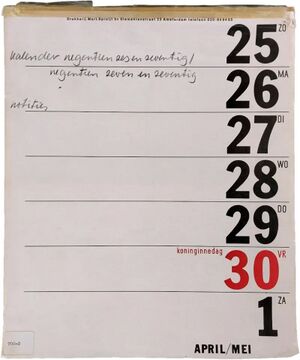 Drukkerij Mart.Spruijt bv Slemmkensstraat 23 Amsterdam telefoon 020-
25 ZO
kalender negentien zes en zeventig/
26 MA
negentien zeven en zeventig
27 DI
notities
28 WO
29 DO
koninginnedag
30 VR
1 ZA
APRIL/MEI